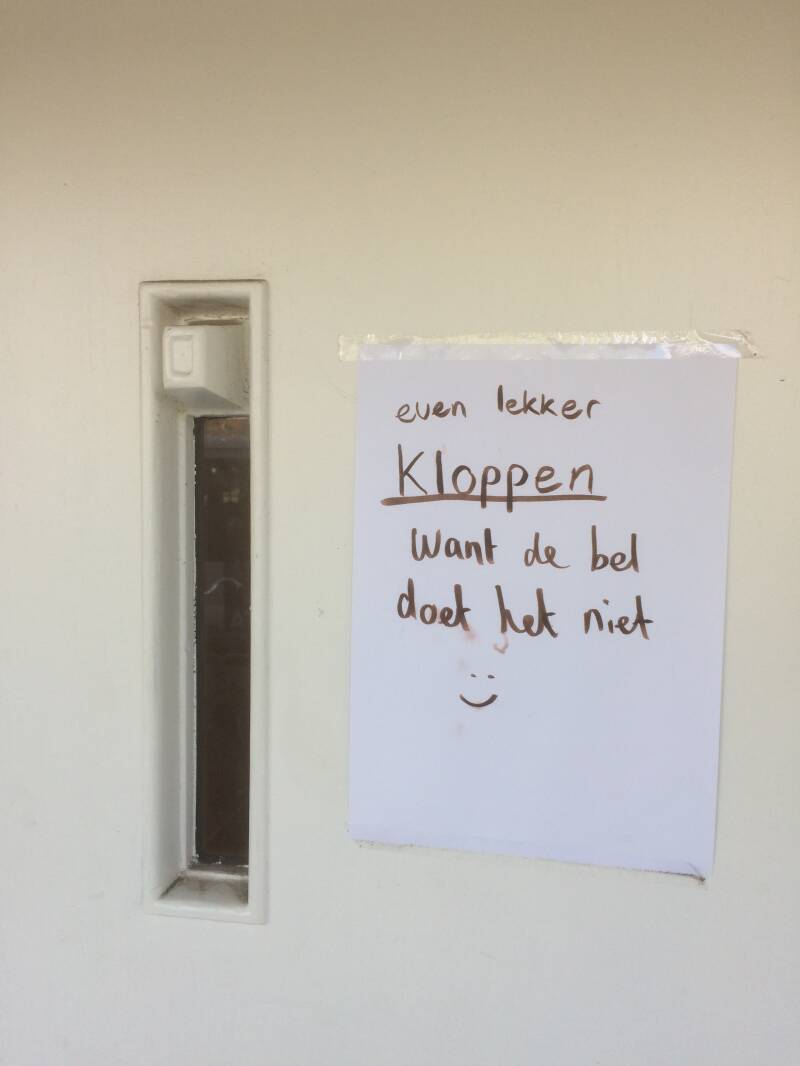 even lekker
Kloppen
want de bel
doet het niet